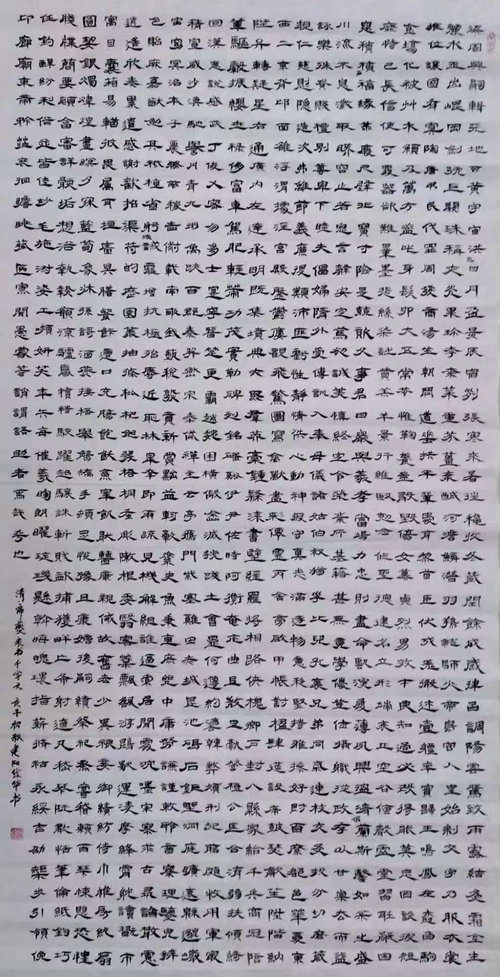 天地玄黃宇宙洪荒日月盈昃辰宿列張寒來暑往秋收冬藏閏餘成歲律呂調陽雲騰致雨露結為霜金生
麗水玉出崑岡劍號巨闕珠稱夜光果珍李柰菜重芥薑海鹹河淡鱗潛羽翔龍師火帝鳥官人皇始制文字乃服衣裳
推位讓國有虞陶唐弔民伐罪周發殷湯坐朝問道垂拱平章愛育黎首臣伏戎羌遐邇壹體率賓歸王鳴鳳在樹白駒
食場化被草木賴及萬方蓋此身髮四大五常恭惟鞠養豈敢毀傷女慕貞潔男效才良知過必改得能莫忘罔談彼短
靡恃己長信使可覆器欲難量墨悲絲染詩讚羔羊景行維賢剋念作聖德建名立形端表正空谷傳聲虛堂習聽禍因
惡積福緣善慶尺璧非寶寸陰是競資父事君曰嚴與敬孝當竭力忠則盡命臨深履薄夙興溫凊似蘭斯馨如松之盛
川流不息淵澄取映容止若思言辭安定篤初誠美慎終宜令榮業所基籍甚無竟學優登仕攝職從政存以甘棠去而
益詠樂殊貴賤禮別尊卑上和下睦夫唱婦隨外受傅訓入奉母儀諸姑伯叔猶子比兒孔懷兄弟同氣連枝交友投分
切磨箴規仁慈隱惻造次弗離節義廉退顛沛匪虧性靜情逸心動神疲守真志滿逐物意移堅持雅操好爵自縻都邑華夏東
西二京背邙面洛浮渭據涇宮殿盤鬱樓觀飛驚圖寫禽獸畫彩仙靈丙舍傍啟甲帳對楹肆筵設席鼓瑟吹笙升階納
陛弁轉疑星右通廣內左達承明既集墳典亦聚群英杜稿鍾隸漆書壁經府羅將相路俠槐卿戶封八縣家給千兵高冠陪
輦驅轂振纓世祿侈富車駕肥輕策功茂實勒碑刻銘磻溪伊尹佐時阿衡奄宅曲阜微旦孰營桓公匡合濟弱扶傾綺
回漢惠說感武丁俊乂密勿多士寔寧晉楚更霸趙魏困橫假途滅虢踐土會盟何遵約法韓弊煩刑起翦頗牧用軍最
精宣威沙漠馳譽丹青九州禹跡百郡秦并嶽宗恒岱禪主云亭雁門紫塞雞田赤城昆池碣石鉅野洞庭曠遠緜邈巖
岫杳冥治本於農務茲稼穡俶載南畝我藝黍稷稅熟貢新勸賞黜陟孟軻敦素史魚秉直庶幾中庸勞謙謹敕聆音察理鑒貌辨
色貽厥嘉猷勉其祗植省躬譏誡寵增抗極殆辱近恥林皋幸即兩疏見機解組誰逼索居閒處沉默寂寥求古尋論散慮
逍遙欣奏累遣慼謝歡招渠荷的歷園莽抽條枇杷晚翠梧桐早凋陳根委翳落葉飄颻遊鵾獨運凌摩絳霄耽讀翫市
寓目囊箱易輶攸畏屬耳垣牆具膳餐飯適口充腸飽飫烹宰飢厭糟糠親戚故舊老少異糧妾御績紡侍巾帷房紈扇
圓潔銀燭煒煌晝眠夕寐藍筍象床弦歌酒讌接杯舉觴矯手頓足悅豫且康嫡後嗣續祭祀蒸嘗稽顙再拜悚懼恐惶
牋牒簡要顧答審詳骸垢想浴執熱願涼驢騾犢特駭躍超驤誅斬賊盜捕獲叛亡布射僚丸嵇琴阮嘯恬筆倫紙鈞巧
任釣釋紛利俗並皆佳妙毛施淑姿工顰妍笑年矢每催曦暉朗曜璇璣懸斡晦魄環照指薪修祜永綏吉劭矩步引領俯
仰廊廟束帶矜莊徘徊瞻眺孤陋寡聞愚蒙等誚謂語助者焉哉乎也